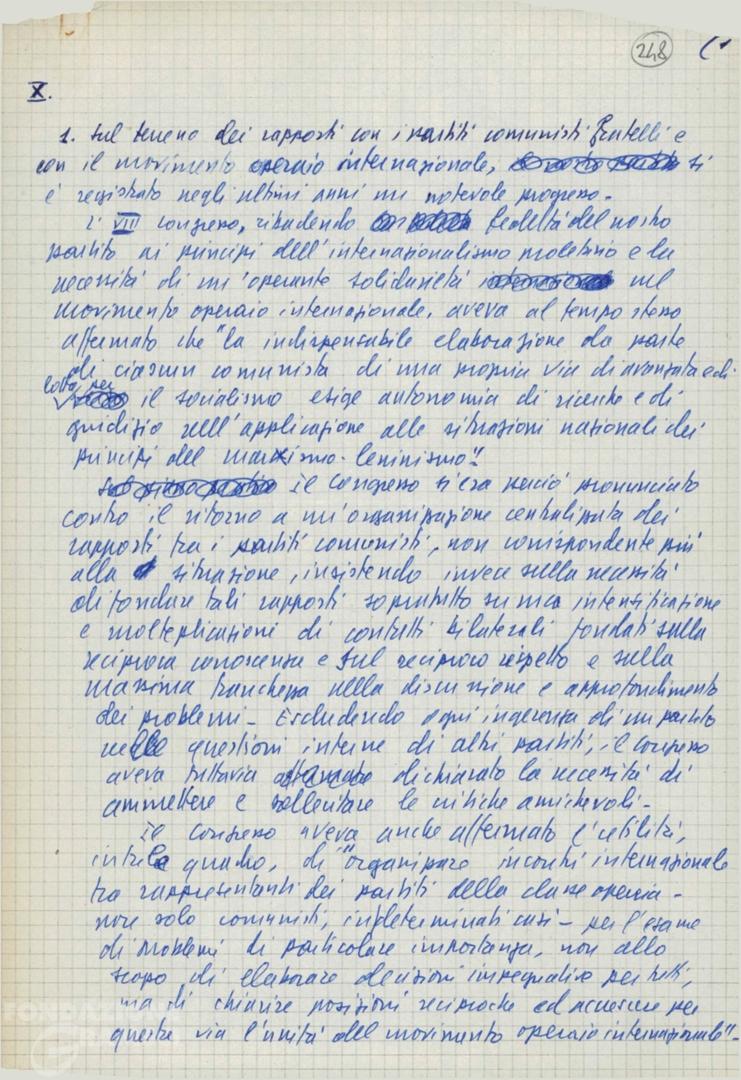 248
X.
1. Sul terreno dei rapporti con i partiti comunisti fratelli e
con il movimento operaio internazionale, si
è registrato negli ultimi anni un notevole progresso.
L'VIII congresso, ribadendo fedeltà del nostro
partito ai principi dell'internazionalismo proletario e la
necessità di un'operante solidarietà nel
movimento operaio internazionale, aveva al tempo stesso
affermato che "la indispensabile elaborazione da parte
di ciascun comunista di una propria via di avanzata e di
lotta per il socialismo esige autonomia di ricerche e di
giudizio nell'applicazione alle situazioni nazionali dei
principi del marxismo-leninismo".
Il Congresso si era perciò pronunciato
contro il ritorno a un'organizzazione centralizzata dei
rapporti tra i partiti comunisti, non corrispondente più
alla situazione, insistendo invece sulla necessità
di fondare tali rapporti soprattutto su una intensificazione
e moltiplicazione di contatti bilaterali fondati sulla
reciproca conoscenza e sul reciproco rispetto e sulla
massima franchezza nella discussione e approfondimento
dei problemi - Escludendo ogni ingerenza di un partito
nelle questioni interne di altri partiti, il congresso
aveva tuttavia dichiarato la necessità di
ammettere e sollecitare le critiche amichevoli -
Il congresso aveva anche affermato l'utilità,
in tale quadro, di "organizzare incontri internazionale
tra rappresentanti dei partiti della classe operaia -
non solo comunisti, in determinati casi - per l'esame
di problemi di particolare importanza, non allo
scopo di elaborare decisioni impegnative per tutti,
ma di chiarire posizioni reciproche ed accrescere per
questa via l'unità del movimento operaio internazionale" -